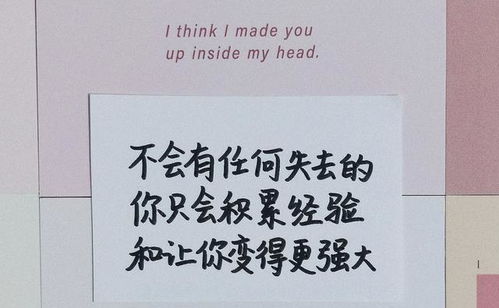 I think I made you
up inside my head.
不会有任何失去的
你只会积累经验
和让你变得更强大
1